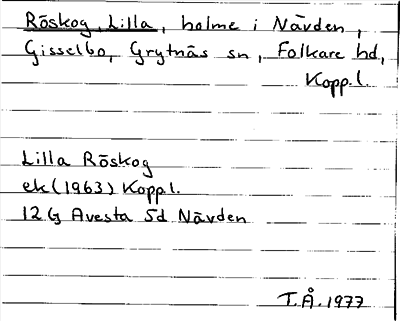 Röskog, Lilla, holme i Nävden,
Gisselbo, Grytnäs sn, Folkare hd,
Kopp.l.
Lilla Röskog
ek (1963) Kopp l.
12 G Avesta 5d Nävden
T.Å. 1977